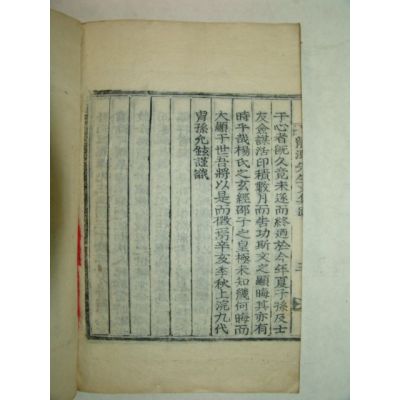 于心者旣久竟未遂而終迺於今年夏子孫及士
友僉謀活印積數月而告功斯文之顯晦其亦有
時乎昔楊氏之玄經邵子之皇極未知幾何晦而
大顯于世吾將以是而徵焉辛亥季秋上浣九代
胄孫允錟謹識